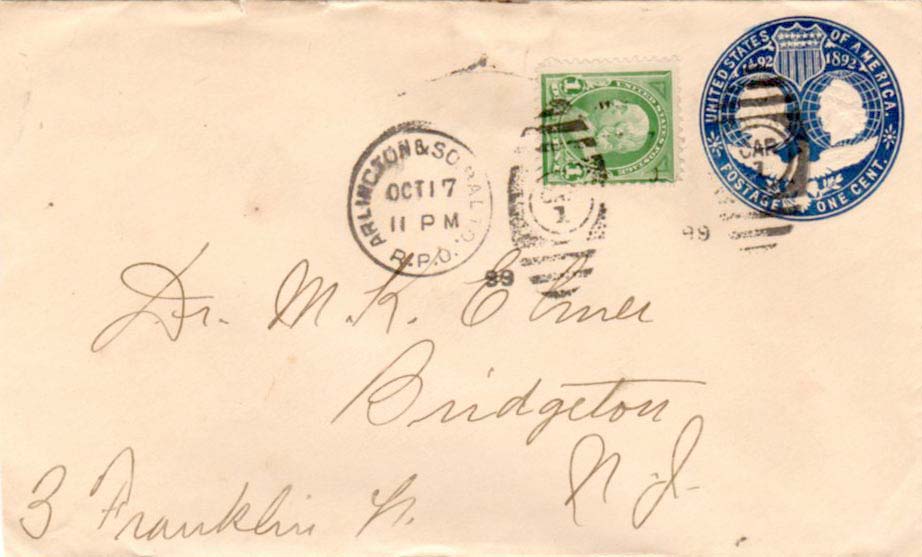 UNITED STATES OF AMERICA.
1492 1892
POSTAGE ONE CENT.
1 UNITED STATES POSTAGE 1
ARLINGTON & SO. BALTO.
OCT 17
11 PM
R.P.O.
CAR
1
CAR
1
99
99
Dr. M. K. Elmer
Bridgeton
N. J.
3 Franklin